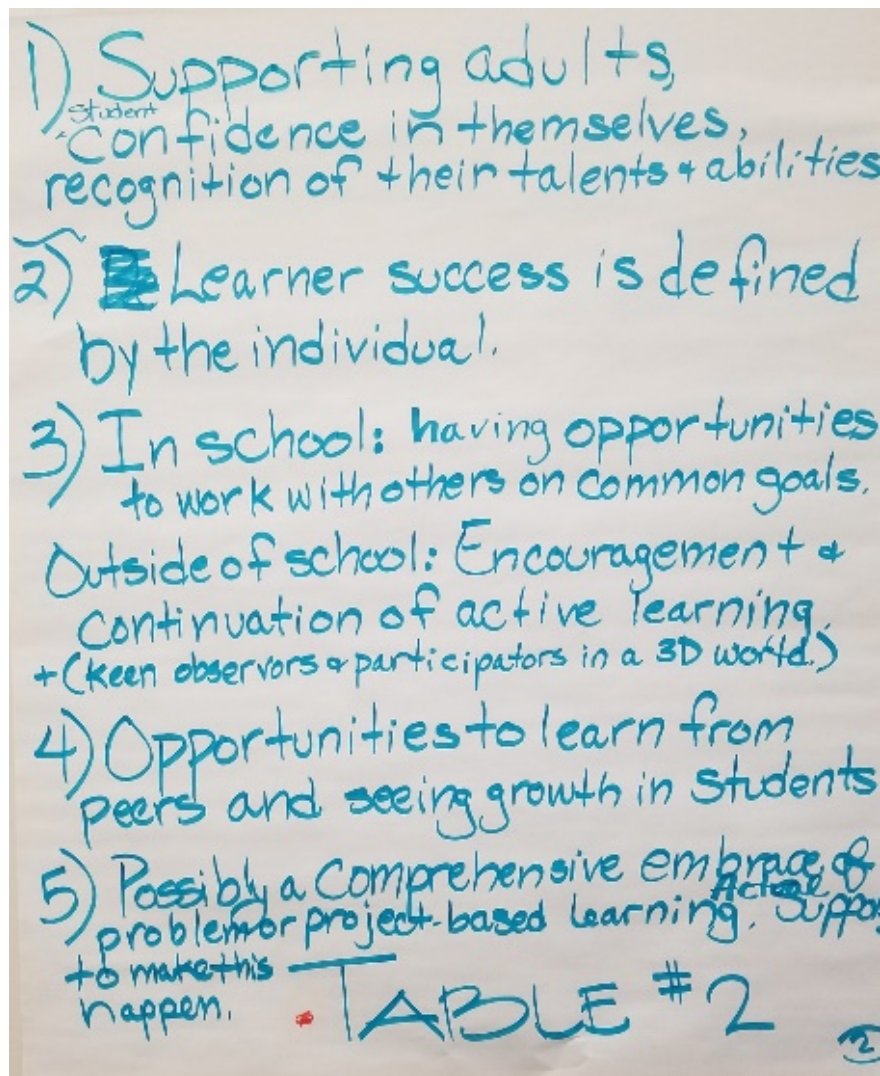 1) Supporting adults,
Student
Confidence in themselves,
recognition of their talents & abilities
2) Learner success is defined
by the individual.
3) In school: having opportunities
to work with others on common goals.
Outside of school: Encouragement &
continuation of active learning.
+ (keen observors & participators in a 3D world.)
4) Opportunities to learn from
peers and seeing growth in students
5) Possibly a comprehensive embrace of
problem or project-based learning. Actual Suppor
to make this
happen.
TABLE #2
2